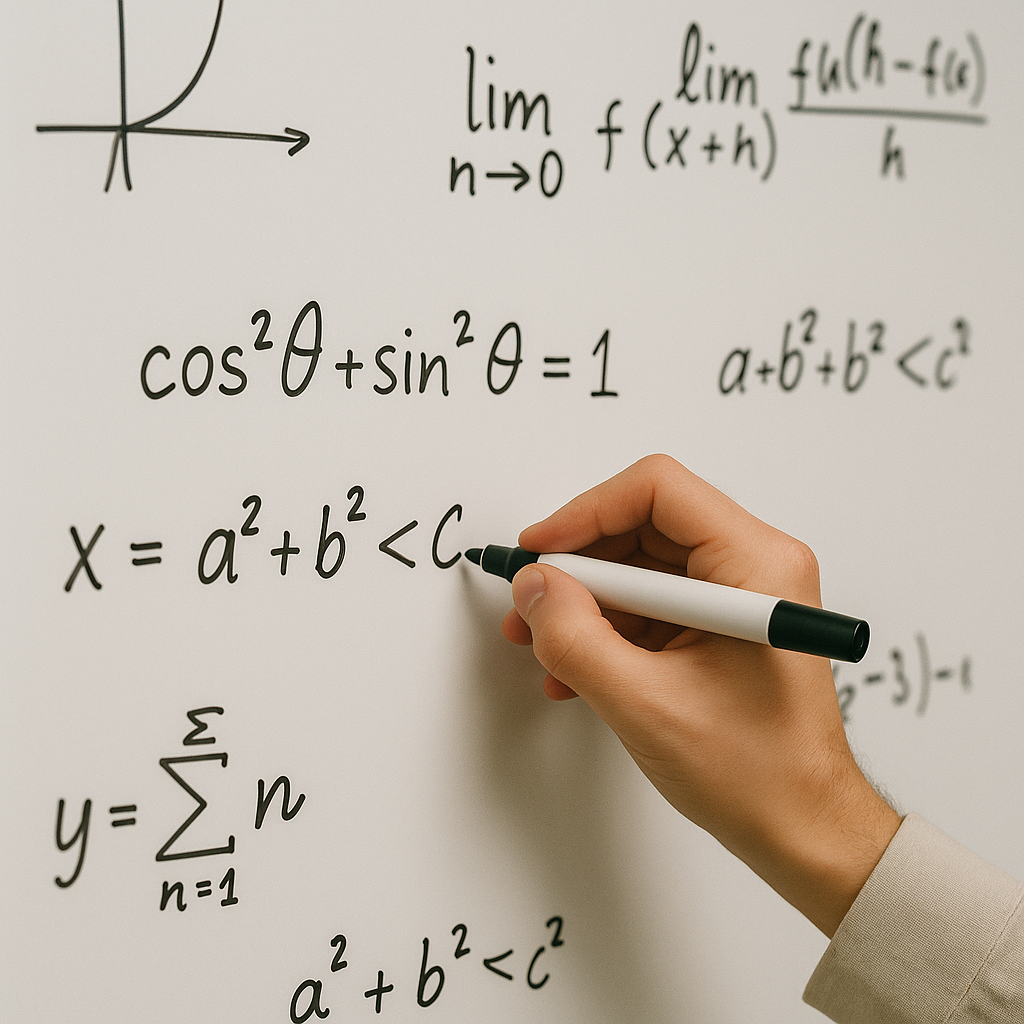 lim n→0 f(x+h) lim fu(h-f(x) / h
cos²θ+sin²θ=1
a+b²+b²<c²
x = a²+b²<c
y = Σ n
Σ
n=1
-3)-1
a²+b²<c²